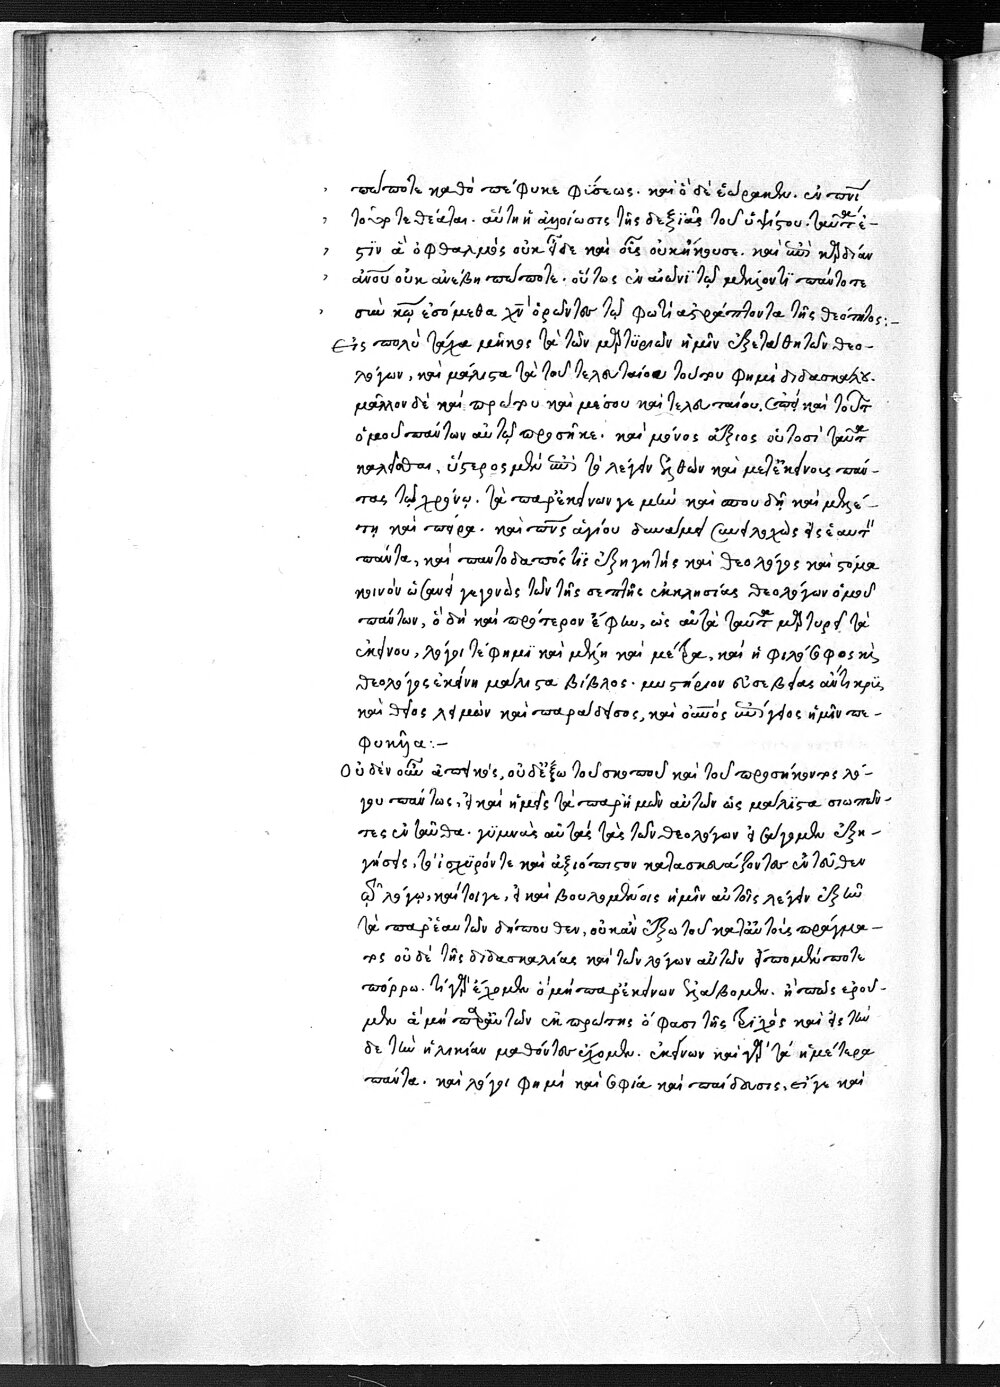 πώποτε καθὸ πέφυκε φύσεως. καὶ ὁ δὲ ἑώρακεν. ἐν πνι
τοῦτο τεθέαται. αὕτη ἡ ἀλοίωσις τῆς δεξιᾶς τοῦ ὑψίστου. ταῦτά ἐ-
στϊν ἃ ὀφθαλμὸς οὐκ εἶδε καὶ οὖς οὐκ ἤκουσε. καὶ ἐπὶ καρδίαν
ἀνου οὐκ ἀνέβη πώποτε. οὕτως ἐν αἰῶνι τῷ μέλλοντι πάντοτε
σὺν κω ἐσόμεθα χν ὁρῶντες τῷ φωτὶ ἀστράπτοντα τῆς θεότητος:-
Εἰς πολὺ τάχα μῆκος τὰ τῶν μαρτυριῶν ἡμῖν ἐξετάθη τῶν θεο-
λόγων, καὶ μάλιστα τὰ τοῦ τελευταίου τούτου φημὶ διδασκάλου.
μᾶλλον δὲ καὶ πρώτου καὶ μέσου καὶ τελευταίου, καὶ τοῦτ
ὁμοῦ πάντων αὐτῷ προσῆκε. καὶ μόνος ἄξιος οὑτοσὶ ταῦτα
καλεῖσθαι, ὕστερος μὲν ἐπὶ τὸ λέγειν ἐλθὼν καὶ μετ ἐκείνους πάν-
τας τῷ χρόνῳ. τὰ παρ ἐκείνων γε μὴν καὶ σπουδῇ καὶ μελέ-
τῃ καὶ πείρα. καὶ πνς ἁγίου δυνάμει συνειλοχὼς εἰς ἑαυτ
πάντα, καὶ παντοδαπός τις ἐξηγητὴς καὶ θεολόγος καὶ στόμα
κοινὸν ὡσανεὶ γεγονὼς τῶν τῆς σεπτῆς ἐκκλησίας θεολόγων ὁμοῦ
πάντων, ὃ δὴ καὶ πρότερον ἔφην, ὡς αὐτὰ ταῦτα μαρτυρεῖ τὰ
ἐκείνου, λόγοι τέ φημι καὶ μέλη καὶ μέτρα, καὶ ἡ φιλόσοφος κς
θεολόγος ἐκείνη μάλιστα βίβλος. μυστήριον εὐσεβείας ἄντικρυς
καὶ θεῖος λειμὼν καὶ παράδεισος, καὶ ἐπίγειος ἡμῖν πε-
φυκυῖα:-
Οὐδὲν οὖν ἀπεικός, οὐδ ἔξω τοῦ σκοποῦ καὶ τοῦ προσήκοντος λό-
γου πάντως, εἰ καὶ ἡμεῖς τὰ παρ ἡμῶν αὐτῶν ὡς μάλιστα σιωπῶν-
τες ἐνταῦθα. γυμνὰς αὐτὰς τὰς τῶν θεολόγων εἰσάγομεν ἐξη-
γήσεις, τὸ ἰσχυρόν τε καὶ ἀξιόπιστον κατασκευάζοντες ἐντεῦθεν
τῷ λόγῳ, καίτοιγε, εἰ καὶ βουλομένοις ἡμῖν αὐτοῖς λέγειν ἐξῆν
τὰ παρ ἑαυτῶν δήπουθεν, οὐκ ἂν ἔξω τοῦ κατ αὐτοὺς πράγμα-
τος οὐδὲ τῆς διδασκαλίας καὶ τῶν λόγων αὐτῶν εἴπομέν ποτε
πόρρω. τί γὰρ ἔχομεν ὃ μὴ παρ ἐκείνων ἐλάβομεν. ἢ πῶς ἐροῦ-
μεν ἃ μὴ παρ αὐτῶν ἐκ πρώτης ὅ φασι τῆς τριχὸς καὶ εἰς τήν
δε τὴν ἡλικίαν μαθόντες ἔχομεν. ἐκείνων καὶ γὰρ τὰ ἡμέτερα
πάντα. καὶ λόγοι φημὶ καὶ σοφία καὶ παίδευσις, εἴγε καὶ